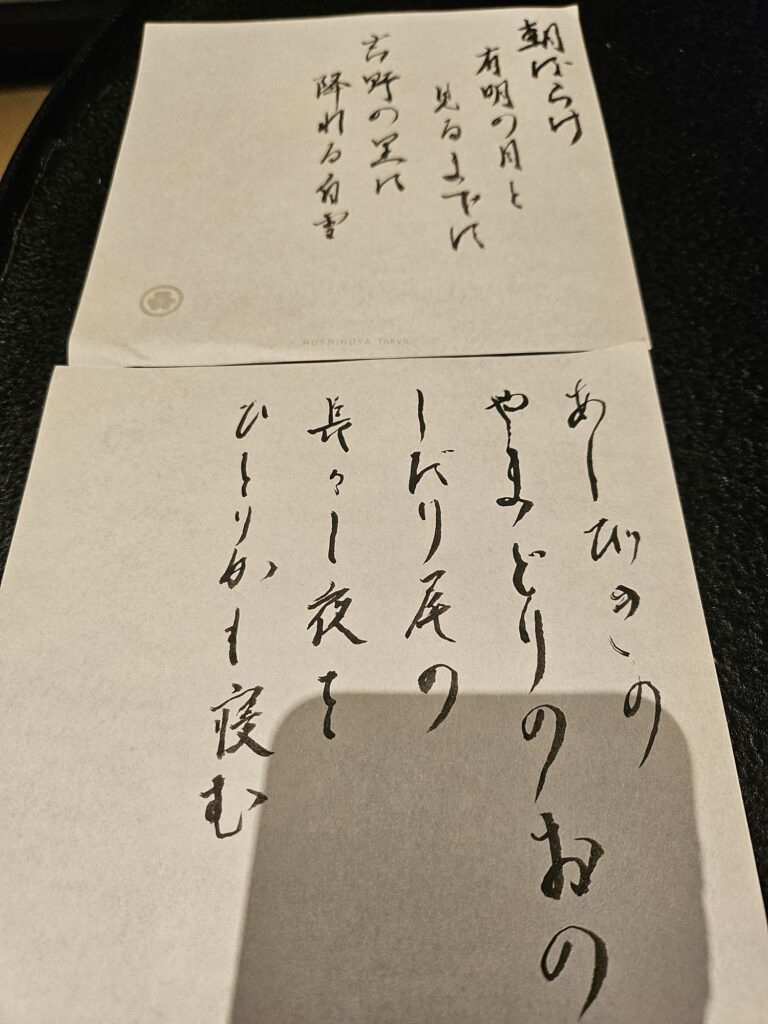 朝ぼらけ
有明の月と
見るまでに
吉野の里に
降れる白雪
HOSHINOYA Tokyo
あしびきの
やまどりのおの
しだり尾の
長々し夜を
ひとりかも寝む